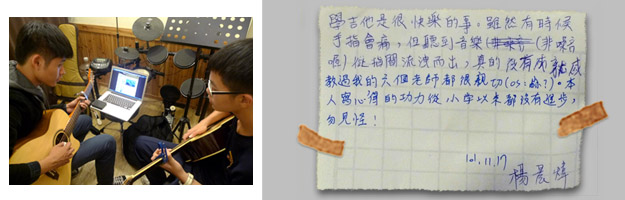 學吉他是很快樂的事。雖然有時候
手指會痛,但聽到音樂(非噪音
喔)從指間流洩而出,真的很有成就感
教過我的六個老師都很親切(os:蘇?)。本
人寫心得的功力從小學以來都沒有進步,
勿見怪!
101.11.17
楊晨煒